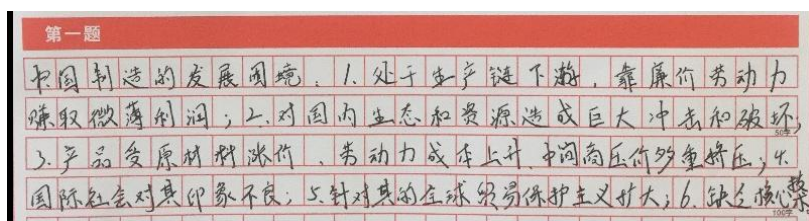 第一题
中国制造的发展困境：1.处于生产链下游，靠廉价劳动力
赚取微薄利润；2.对国内生态和资源造成巨大冲击和破坏；
50字
3.产品受原材料涨价、劳动力成本上升、中间商压价多重挤压；4.
国际社会对其印象不良；5.针对其的全球贸易保护主义扩大；6.缺乏核心技术
100字